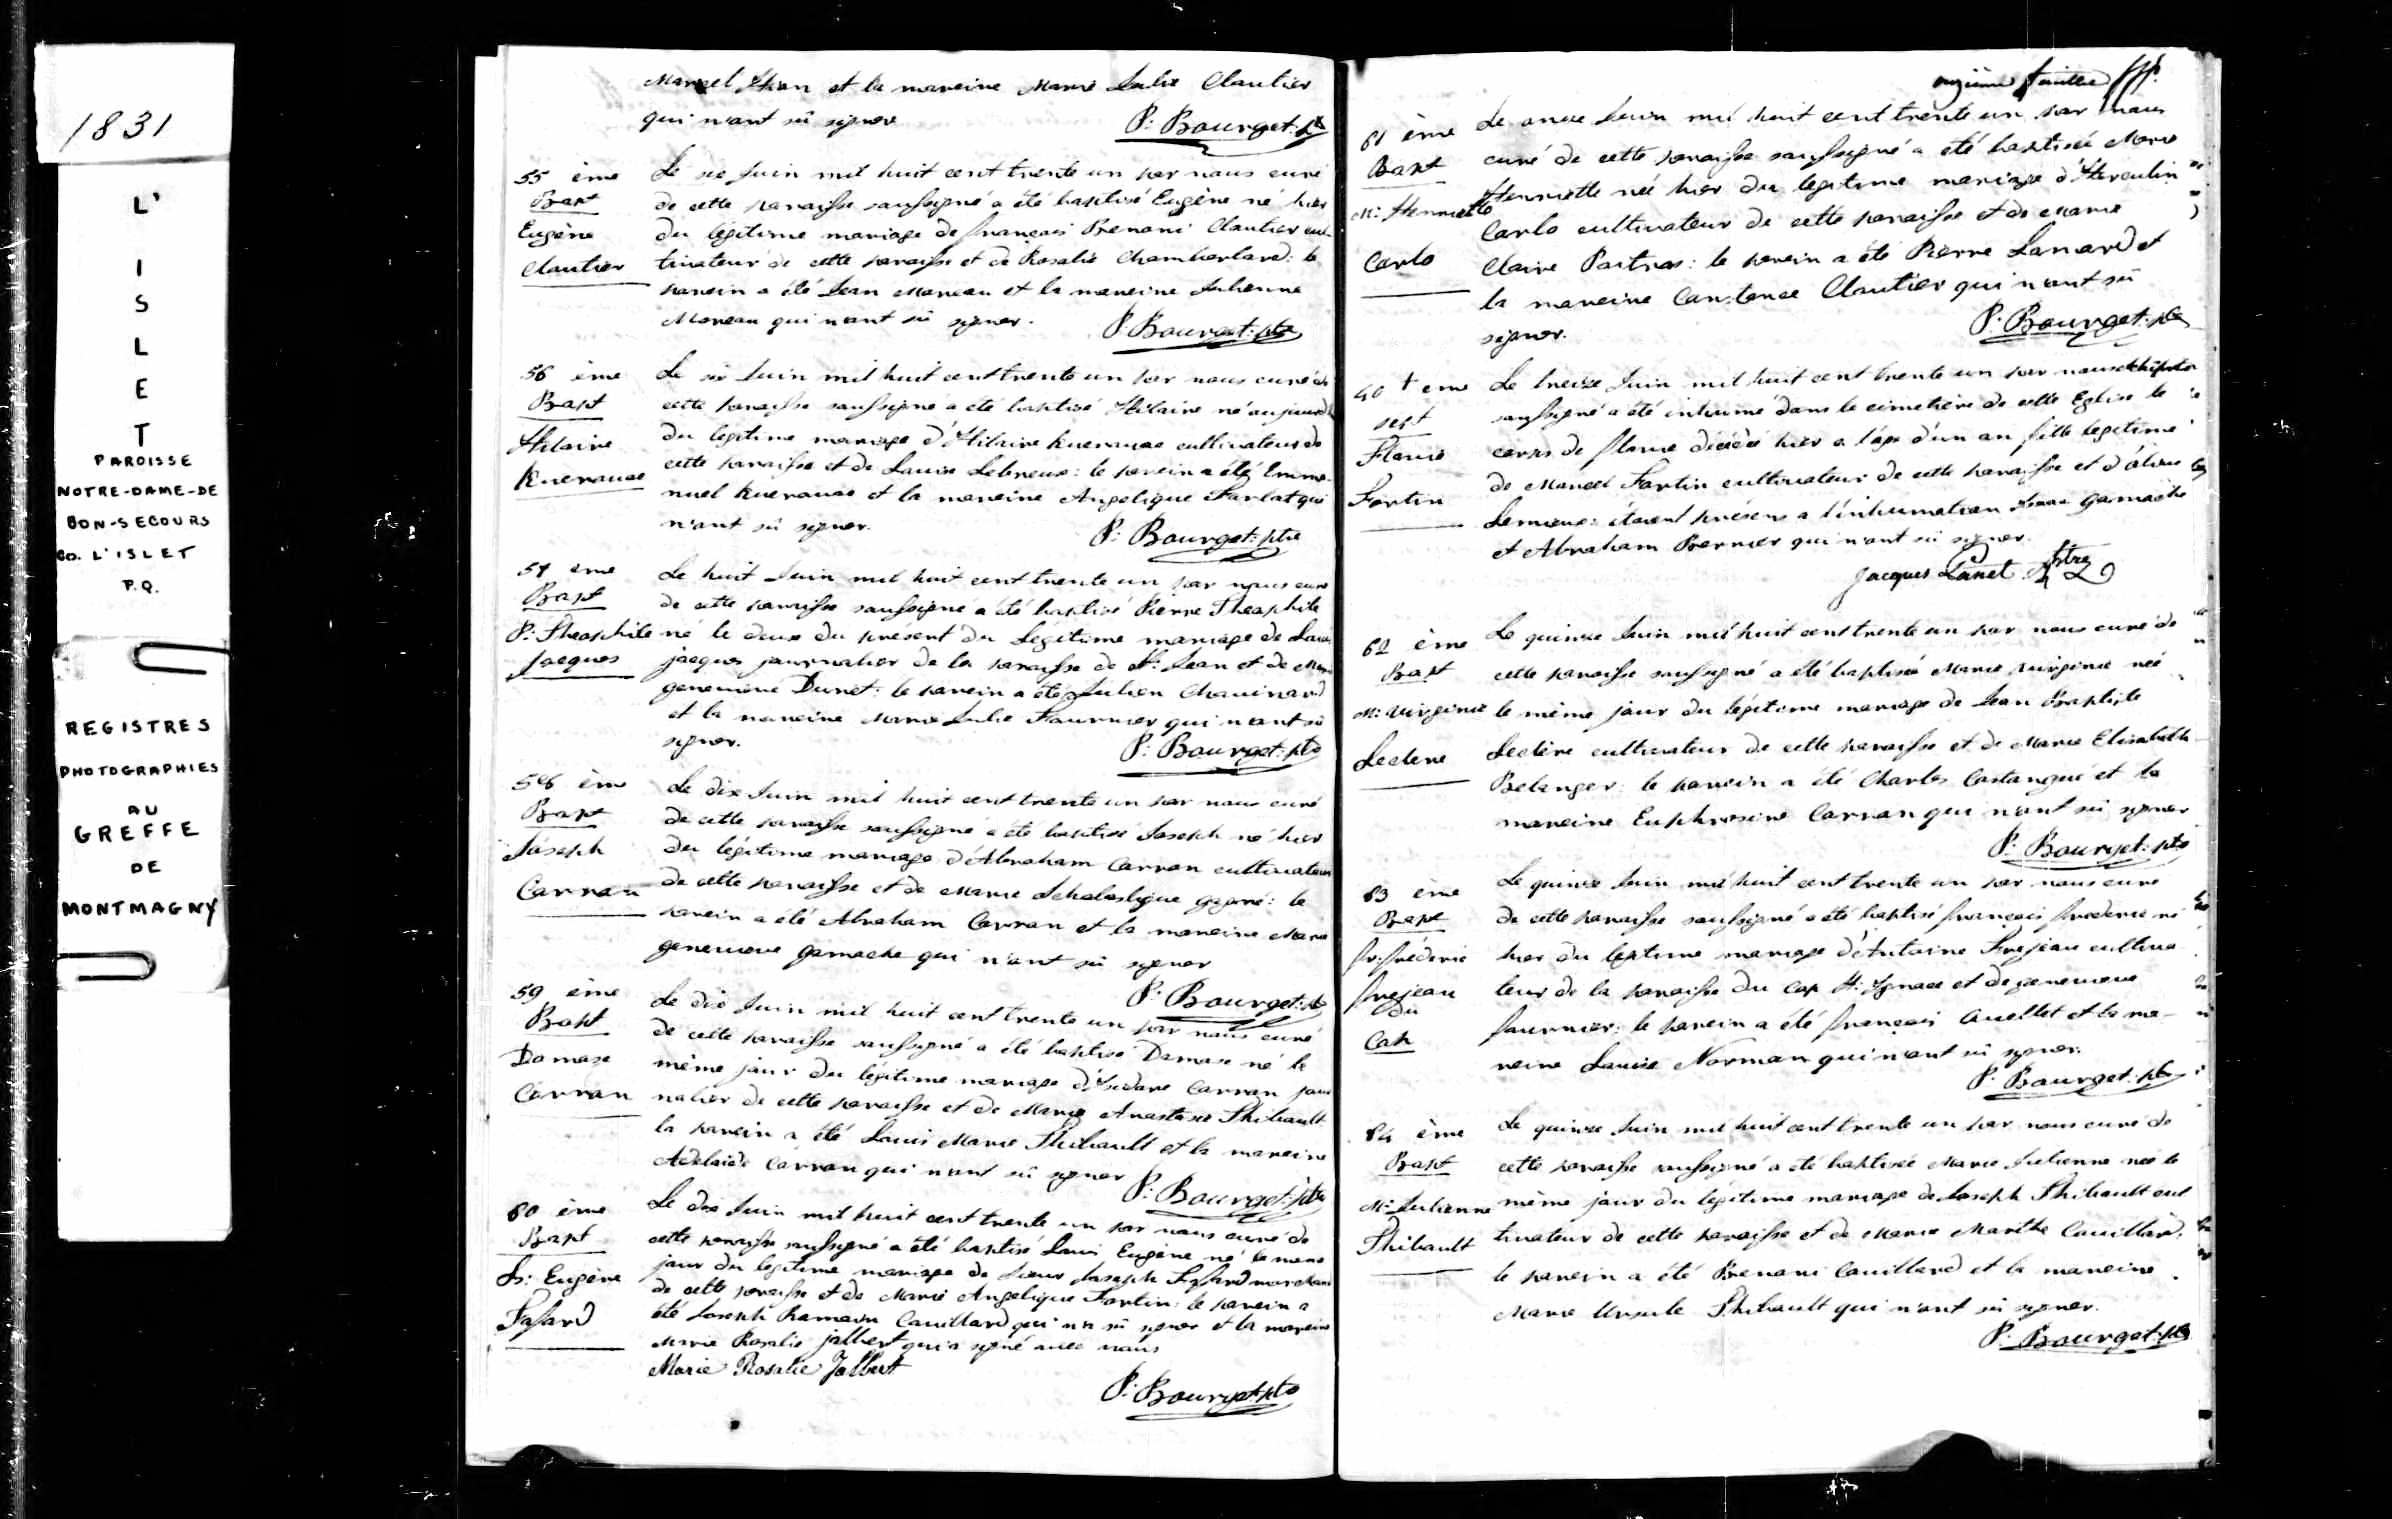 1831
L'
I
S
L
E
T
PAROISSE
NOTRE-DAME-DE
BON-SECOURS
CO. L'ISLET
P.Q.
REGISTRES
PHOTOGRAPHIES
AU
GREFFE
DE
MONTMAGNY
Marcel et la mareine Marie Julie Cloutier
qui n'ont sû signer
P: Bourget: ptre
55 ème
Bapt
Eugène
Cloutier
Le six Juin mil huit cent trente un par nous curé
de cette paroisse soussigné a été baptisé Eugène né hier
du légitime mariage de françois Benoni Cloutier cul
tivateur de cette paroisse et de Rosalie Chamberland: le
parein a été Jean Moreau et la mareine Julienne
Moreau qui n'ont sû signer.
P: Bourget: ptre
56 ème
Bapt
Hilaire
Kuerouac
Le six Juin mil huit cent trente un par nous curé de
cette paroisse soussigné a été baptisé Hilaire né aujourd
du légitime mariage d'Hilaire Kuerouac cultivateur de
cette paroisse et de Louise Lebreux: le parein a été Emma
nuel Kuerouac et la mareine Angelique qui
n'ont sû signer.
P: Bourget: ptre
57 ème
Bapt
P: Theophile
Jacques
Le huit Juin mil huit cent trente un par nous curé
de cette paroisse soussigné a été baptisé Pierre Theophile
né le deux du présent du Légitime mariage de Louis
jacques journalier de la paroisse de St: Jean et de Marie
genevieve Dunet: le parein a été Julien Chouinard
et la mareine Marie Julie Fournier qui n'ont sû
signer.
P: Bourget: ptre
58 ème
Bapt
Joseph
Carron
Le dix Juin mil huit cent trente un par nous curé
de cette paroisse soussigné a été baptisé Joseph né hier
du légitime mariage d'Abraham Carron cultivateur
de cette paroisse et de Marie Scholastique gagné: le
parein a été Abraham Carron et la mareine Marie
genevieve gamache qui n'ont sû signer
P: Bourget: ptre
59 ème
Bapt
Damase
Carron
Le dix Juin mil huit cent trente un par nous curé
de cette paroisse soussigné a été baptisé Damase né le
même jour du légitime mariage d'Isidore Carron jour
nalier de cette paroisse et de Marie Anastasie Thibault
le parein a été Louis Marie Thibault et la mareine
Adelaide Carron qui n'ont sû signer
P: Bourget: ptre
60 ème
Bapt
Ls: Eugène
Fafard
Le dix Juin mil huit cent trente un par nous curé de
cette paroisse soussigné a été baptisé Louis Eugène né le meme
jour du legitime mariage de Sieur Joseph Fafard marchand
de cette paroisse et de Marie Angelique Fortin: le parein a
été Joseph Romain Couillard qui n'a sû signer et la mareine
Marie Rosalie jalbert qui a signé avec nous
Marie Rosalie Jalbert
P: Bourget: ptre
onzième feuille
61 ème
Bapt
M: Henriette
Carlo
Le onze Juin mil huit cent trente un par nous
curé de cette paroisse soussigné a été baptisée Marie
Henriette née hier du legitime mariage d'Herculin
Carlo cultivateur de cette paroisse et de Marie
Claire Poitras: le parein a été Pierre et
la mareine Constance Cloutier qui n'ont sû
signer.
P: Bourget: ptre
40 ème
sept
Flavie
Fortin
Le treize Juin mil huit cent trente un par nous
soussigné a été inhumé dans le cimetière de cette Eglise le
corps de flavie décédée hier a l'âge d'un an fille legitime
de Marcel Fortin cultivateur de cette paroisse et
Lemieux: étoient présens a l'inhumation gamache
et Abraham Bernier qui n'ont sû signer.
Jacques Panet Ptre
62 ème
Bapt
M: Virginie
Leclere
Le quinze Juin mil huit cent trente un par nous curé de
cette paroisse soussigné a été baptisée Marie Virginie née
le même jour du légitime mariage de Jean Baptiste
Leclère cultivateur de cette paroisse et de Marie Elisabeth
Belanger: le parein a été Charles Castangué et la
mareine Euphrosine Carron qui n'ont sû signer
P: Bourget: ptre
63 ème
Bapt
fr: fréderic
frejeau
du
Cap
Le quinze Juin mil huit cent trente un par nous curé
de cette paroisse soussigné a été baptisé françois frederic né
hier du legitime mariage d'Antoine frejeau cultiva
teur de la paroisse du Cap St: Ignace et de genevieve
fournier: le parein a été françois Ouellet et la ma-
reine Louise Norman qui n'ont sû signer.
P: Bourget: ptre
64 ème
Bapt
M: Julienne
Thibault
Le quinze Juin mil huit cent trente un par nous curé de
cette paroisse soussigné a été baptisée Marie Julienne née le
même jour du légitime mariage de Joseph Thibault cul
tivateur de cette paroisse et de Marie Marthe Couillard.
le parein a été Benoni Couillard et la mareine
Marie Ursule Thibault qui n'ont sû signer.
P: Bourget: ptre